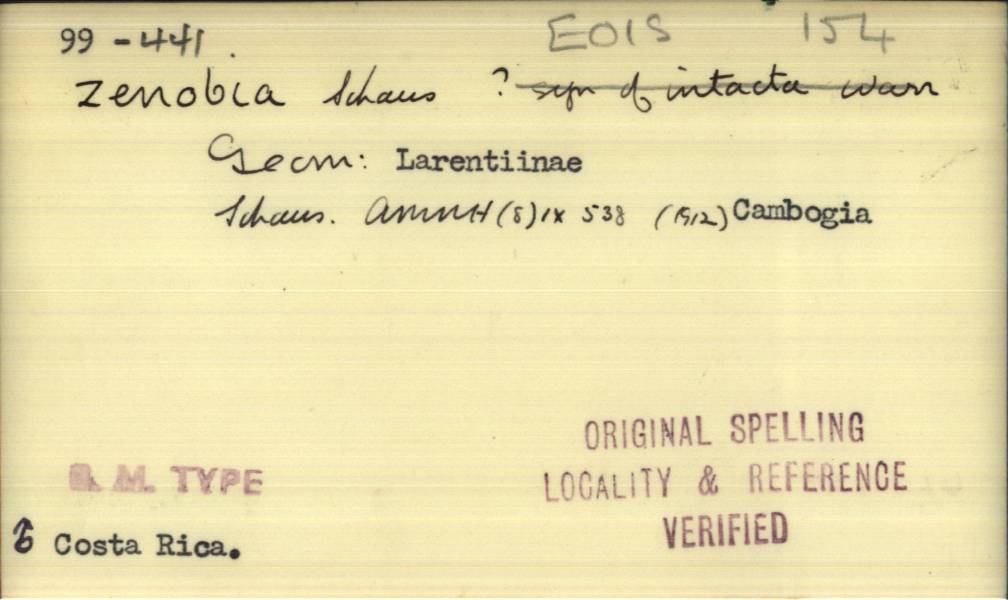 99 - 441. EOIS 154
zenobia Schaus ? syn of intacta Warr
Geom: Larentiinae
Schaus. AMNH (8) IX 538 (1912) Cambogia
ORIGINAL SPELLING
LOCALITY & REFERENCE
VERIFIED
B. M. TYPE
♂ Costa Rica.